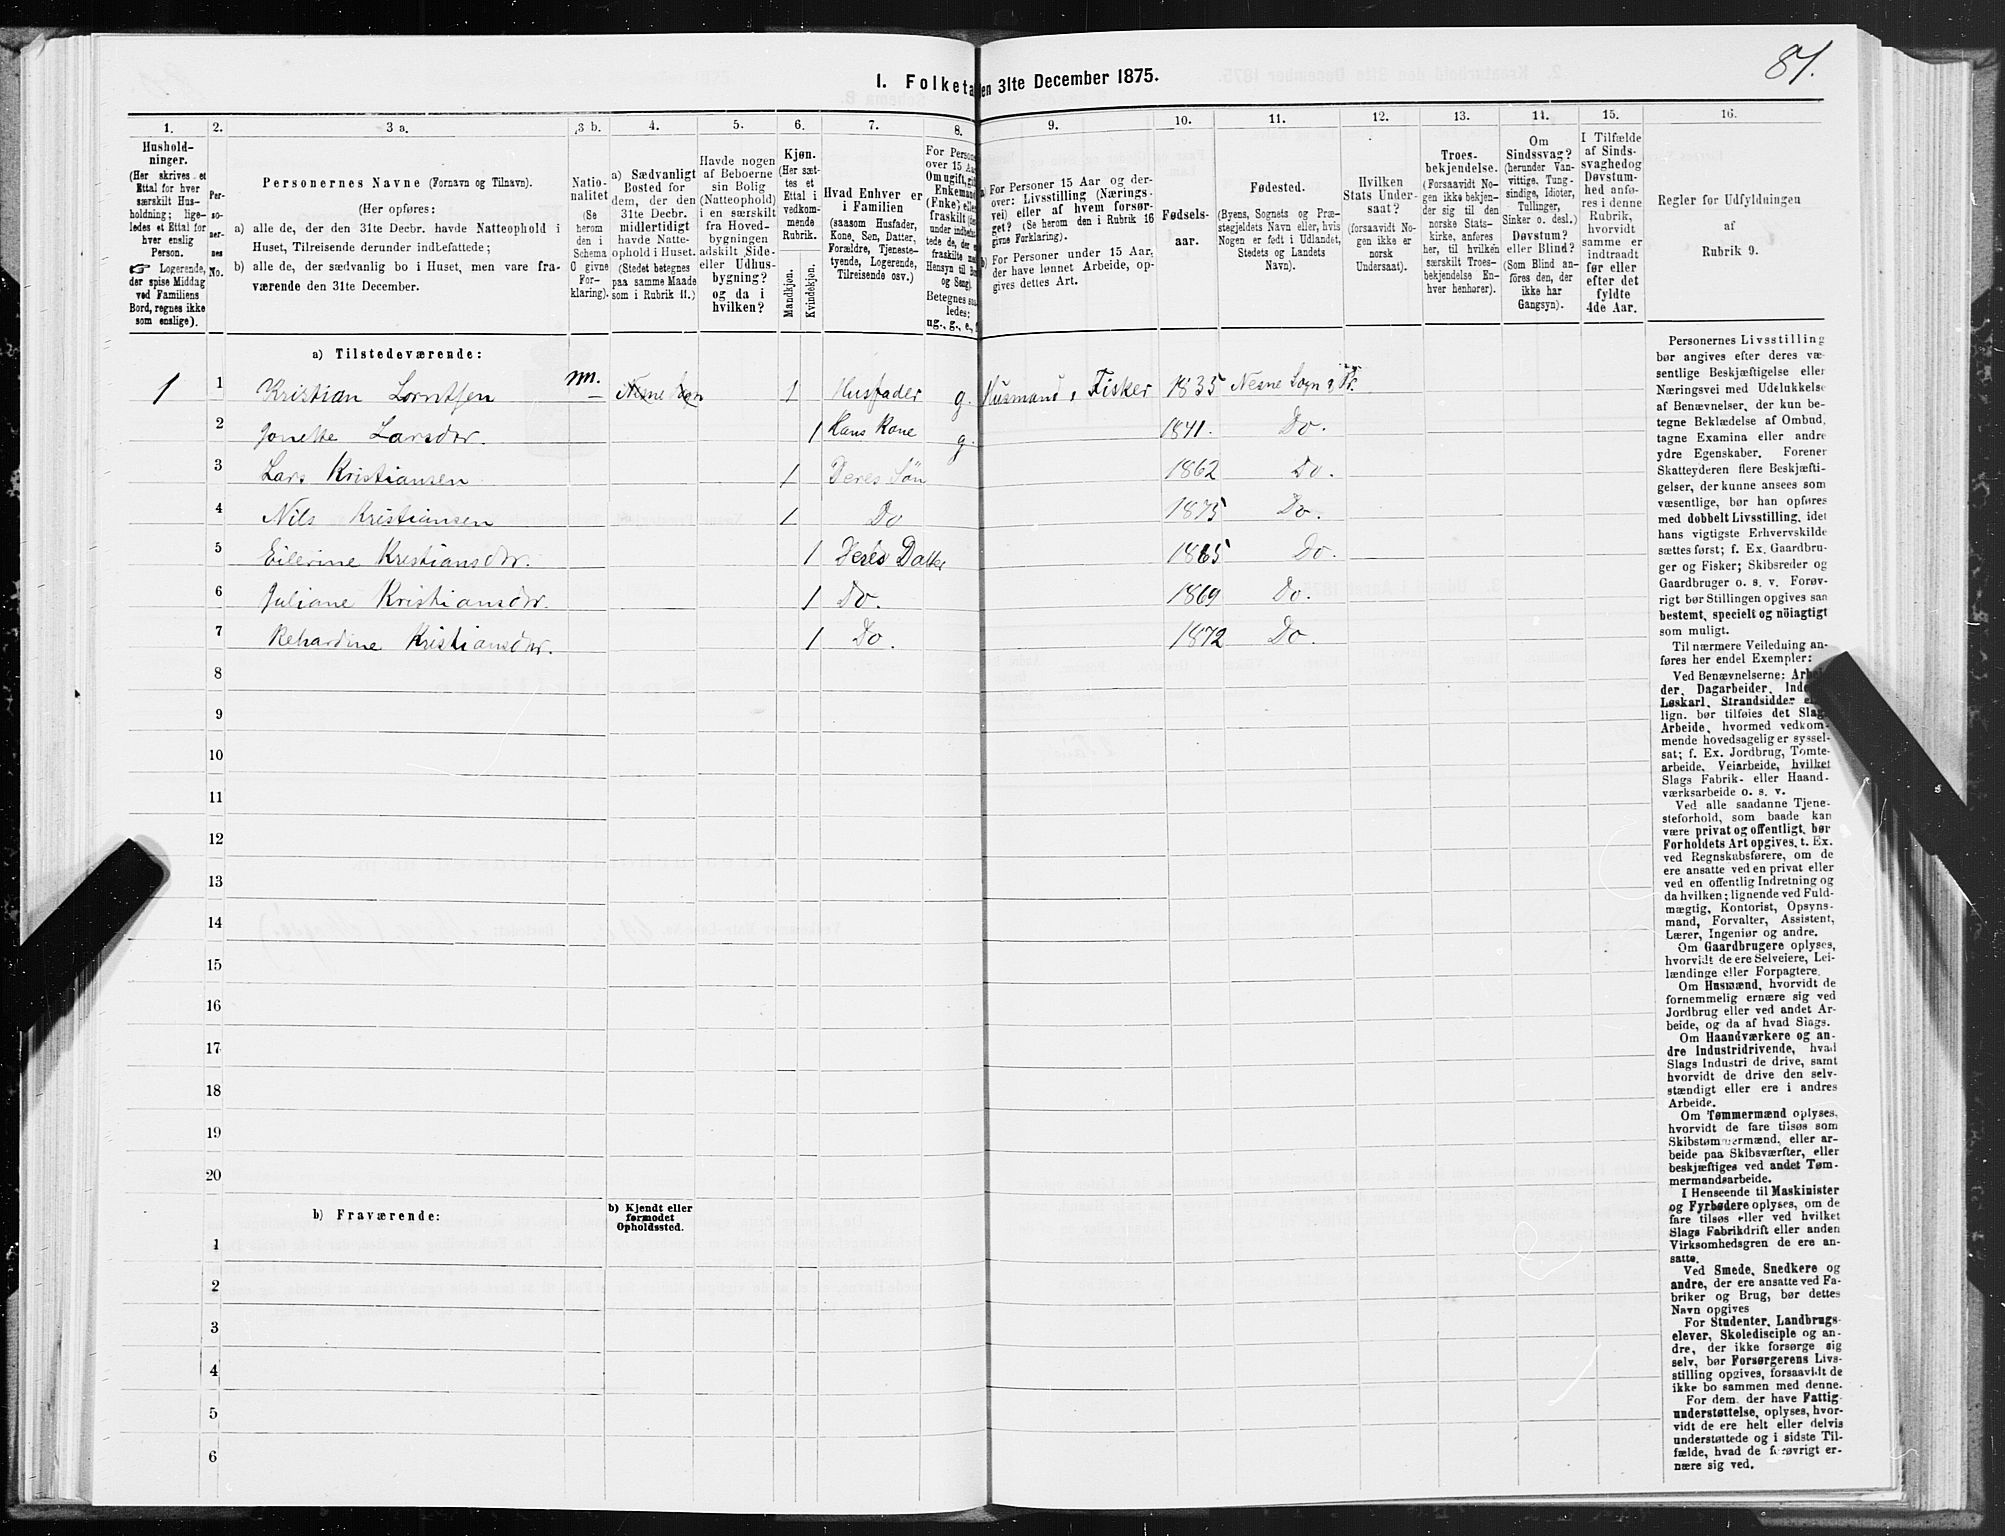 81.
I. Folketa en 31te December 1875.
1. 2. 3 a. 3 b. 4. 5. 6. 7. 8. 9. 10. 11. 12. 13. 14. 15. 16.
Hushold-
ninger.
(Her skrives et
Ettal for hver
særskilt Hus-
holdning; lige-
ledes et Ettal for
hver enslig
Person.
☞ Logerende,
der spise Middag
ved Familiens
Bord, regnes ikke
som enslige).
Per-
so-
ner-
nes
No.
Personernes Navne (Fornavn og Tilnavn).
(Her opføres:
a) alle de, der den 31te Decbr. havde Natteophold i
Huset, Tilreisende derunder indbefattede;
b) alle de, der sædvanlig bo i Huset, men vare fra-
værende den 31te December.
Natio-
nalitet
(Se
herom
den i
Schema
O givne
For-
klaring).
a) Sædvanligt
Bosted for
dem, der den
31te Decbr.
midlertidigt
havde Natte-
ophold i Huset.
(Stedet betegnes
paa samme Maade
som i Rubrik 11.)
Havde nogen
af Beboerne
sin Bolig
(Natteophold)
i en særskilt
fra Hoved-
bygningen
adskilt Side-
eller Udhus-
bygning?
og da i
hvilken?
Kjøn.
(Her sæt-
tes et
Ettal i
vedkom-
mende
Rubrik.
Mandkjøn.
Kvindekjøn.
Hvad Enhver er
i Familien
(saasom Husfader,
Kone, Søn, Datter,
Forældre, Tjeneste-
tyende, Logerende,
Tilreisende osv.)
For Person
over 15 Aar
Om ugift, gift
Enkemand
(Enke) eller
fraskilt
Hensyn til Bo
og Seng).
Betegnes saa
ledes:
ug., g., e.,
a) For Personer 15 Aar og der-
over: Livsstilling (Nærings-
vei) eller af hvem forsør-
get? (Se herom den i Rubrik 16
givne Forklaring).
b) For Personer under 15 Aar,
der have lønnet Arbeide, op-
gives dettes Art.
Fødsels-
aar.
Fødested.
(Byens, Sognets og Præ-
stegjeldets Navn eller, hvis
Nogen er født i Udlandet,
Stedets og Landets
Navn).
Hvilken
Stats Under-
saat?
(forsaavidt No-
gen ikke er
norsk
Undersaat).
Troes-
bekjendelse.
(Forsaavidt No-
gen ikke bekjen-
der sig til den
norske Stats-
kirke, anføres
her, til hvilken
særskilt Troes-
bekjendelse En-
hver henhører).
Om
Sindssvag?
(herunder Van-
vittige, Tung-
sindige, Idioter,
Tullinger,
Sinker o. desl.)
Døvstum?
eller Blind?
(Som Blind an-
føres den, der
ikke har
Gangsyn).
I Tilfælde
af Sinds-
svaghedog
Døvstum-
hed anfø-
res i denne
Rubrik,
hvorvidt
samme er
indtraadt
før eller
efter det
fyldte
4de Aar.
Regler for Udfyldningen
af
Rubrik 9.
a) Tilstedeværende:
1 1 Kristian Lorntsen nn. Nesne Sogn 1 Husfader g. Husmand, Fisker 1835 Nesne Sogn & Pr.
2 Jonette Larsdtr. 1 Hans Kone g. 1841. Do.
3 Lars Kristiansen 1 Deres Søn 1862 Do.
4 Nils Kristiansen 1 Do 1875 Do.
5 Eilerine Kristiansdtr. 1 Deres Datter 1865 Do.
6 Juliane Kristiansdtr. 1 Do. 1869 Do.
7 Rehardine Kristiansdtr. 1 Do. 1872 Do
8
9
10
11
12
13
14
15
16
17
18
19
20
b) Fraværende:
b) Kjendt eller
formodet
Opholdssted.
1
2
3
4
5
6
Personernes Livsstilling
bør angives efter deres væ-
sentlige Beskjæftigelse eller
Næringsvei med Udelukkelse
af Benævnelser, der kun be-
tegne Beklædelse af Ombud,
tagne Examina eller andre
ydre Egenskaber. Forener
Skatteyderen flere Beskjæfti-
gelser, der kunne ansees som
væsentlige, bør han opføres
med dobbelt Livsstilling, idet
hans vigtigste Erhvervskilde
sættes først; f. Ex. Gaardbru-
ger og Fisker; Skibsreder og
Gaardbruger o. s. v. Forøv-
rigt bør Stillingen opgives saa
bestemt, specielt og nöiagtigt
som muligt.
Til nærmere Veiledning an-
føres her endel Exempler:
Ved Benævnelserne: Arbei-
der, Dagarbeider, Inder
Løskarl, Strandsidder
lign. bør tilføies det Slags
Arbeide, hvormed vedkom-
mende hovedsagelig er syssel-
sat; f. Ex. Jordbrug, Tomte-
arbeide, Veiarbeide, hvilket
Slags Fabrik- eller Haand-
værksarbeide o. s. v.
Ved alle saadanne Tjene-
steforhold, som baade kan
være privat og offentligt, bør
Forholdets Art opgives, t. Ex.
ved Regnskabsførere, om de
ere ansatte ved en privat eller
ved en offentlig Indretning og
da hvilken; lignende ved Fuld-
mægtig, Kontorist, Opsyns-
mand, Forvalter, Assistent,
Lærer, Ingeniør og andre.
Om Gaardbrugere oplyses,
hvorvidt de ere Selveiere, Lei-
lændinge eller Forpagtere.
Om Husmænd, hvorvidt de
fornemmelig ernære sig ved
Jordbrug eller ved andet Ar-
beide, og da af hvad Slags.
Om Haandværkere og an-
dre Industridrivende, hvad
Slags Industri de drive, samt
hvorvidt de drive den selv-
stændigt eller ere i andres
Arbeide.
Om Tømmermænd oplyses,
hvorvidt de fare tilsøs som
Skibstømmermænd, eller ar-
beide paa Skibsværfter, eller
beskjæftiges ved andet Tøm-
mermandsarbeide.
I Henseende til Maskinister
og Fyrbødere oplyses, om de
fare tilsøs eller ved hvilket
Slags Fabrikdrift eller anden
Virksomhedsgren de ere an-
satte.
Ved Smede, Snedkere og
andre, der ere ansatte ved Fa-
briker og Brug, bør dettes
Navn opgives
For Studenter, Landbrugs-
elever, Skoledisciple og an-
dre, der ikke forsørge sig
selv, bør Forsørgerens Livs-
stilling opgives, forsaavidt de
ikke bo sammen med denne.
For dem, der have Fattig-
understøttelse, oplyses, hvor-
vidt de ere helt eller delvis
understøttede og i sidste Til-
fælde, hvad de forøvrigt er-
nære sig ved.